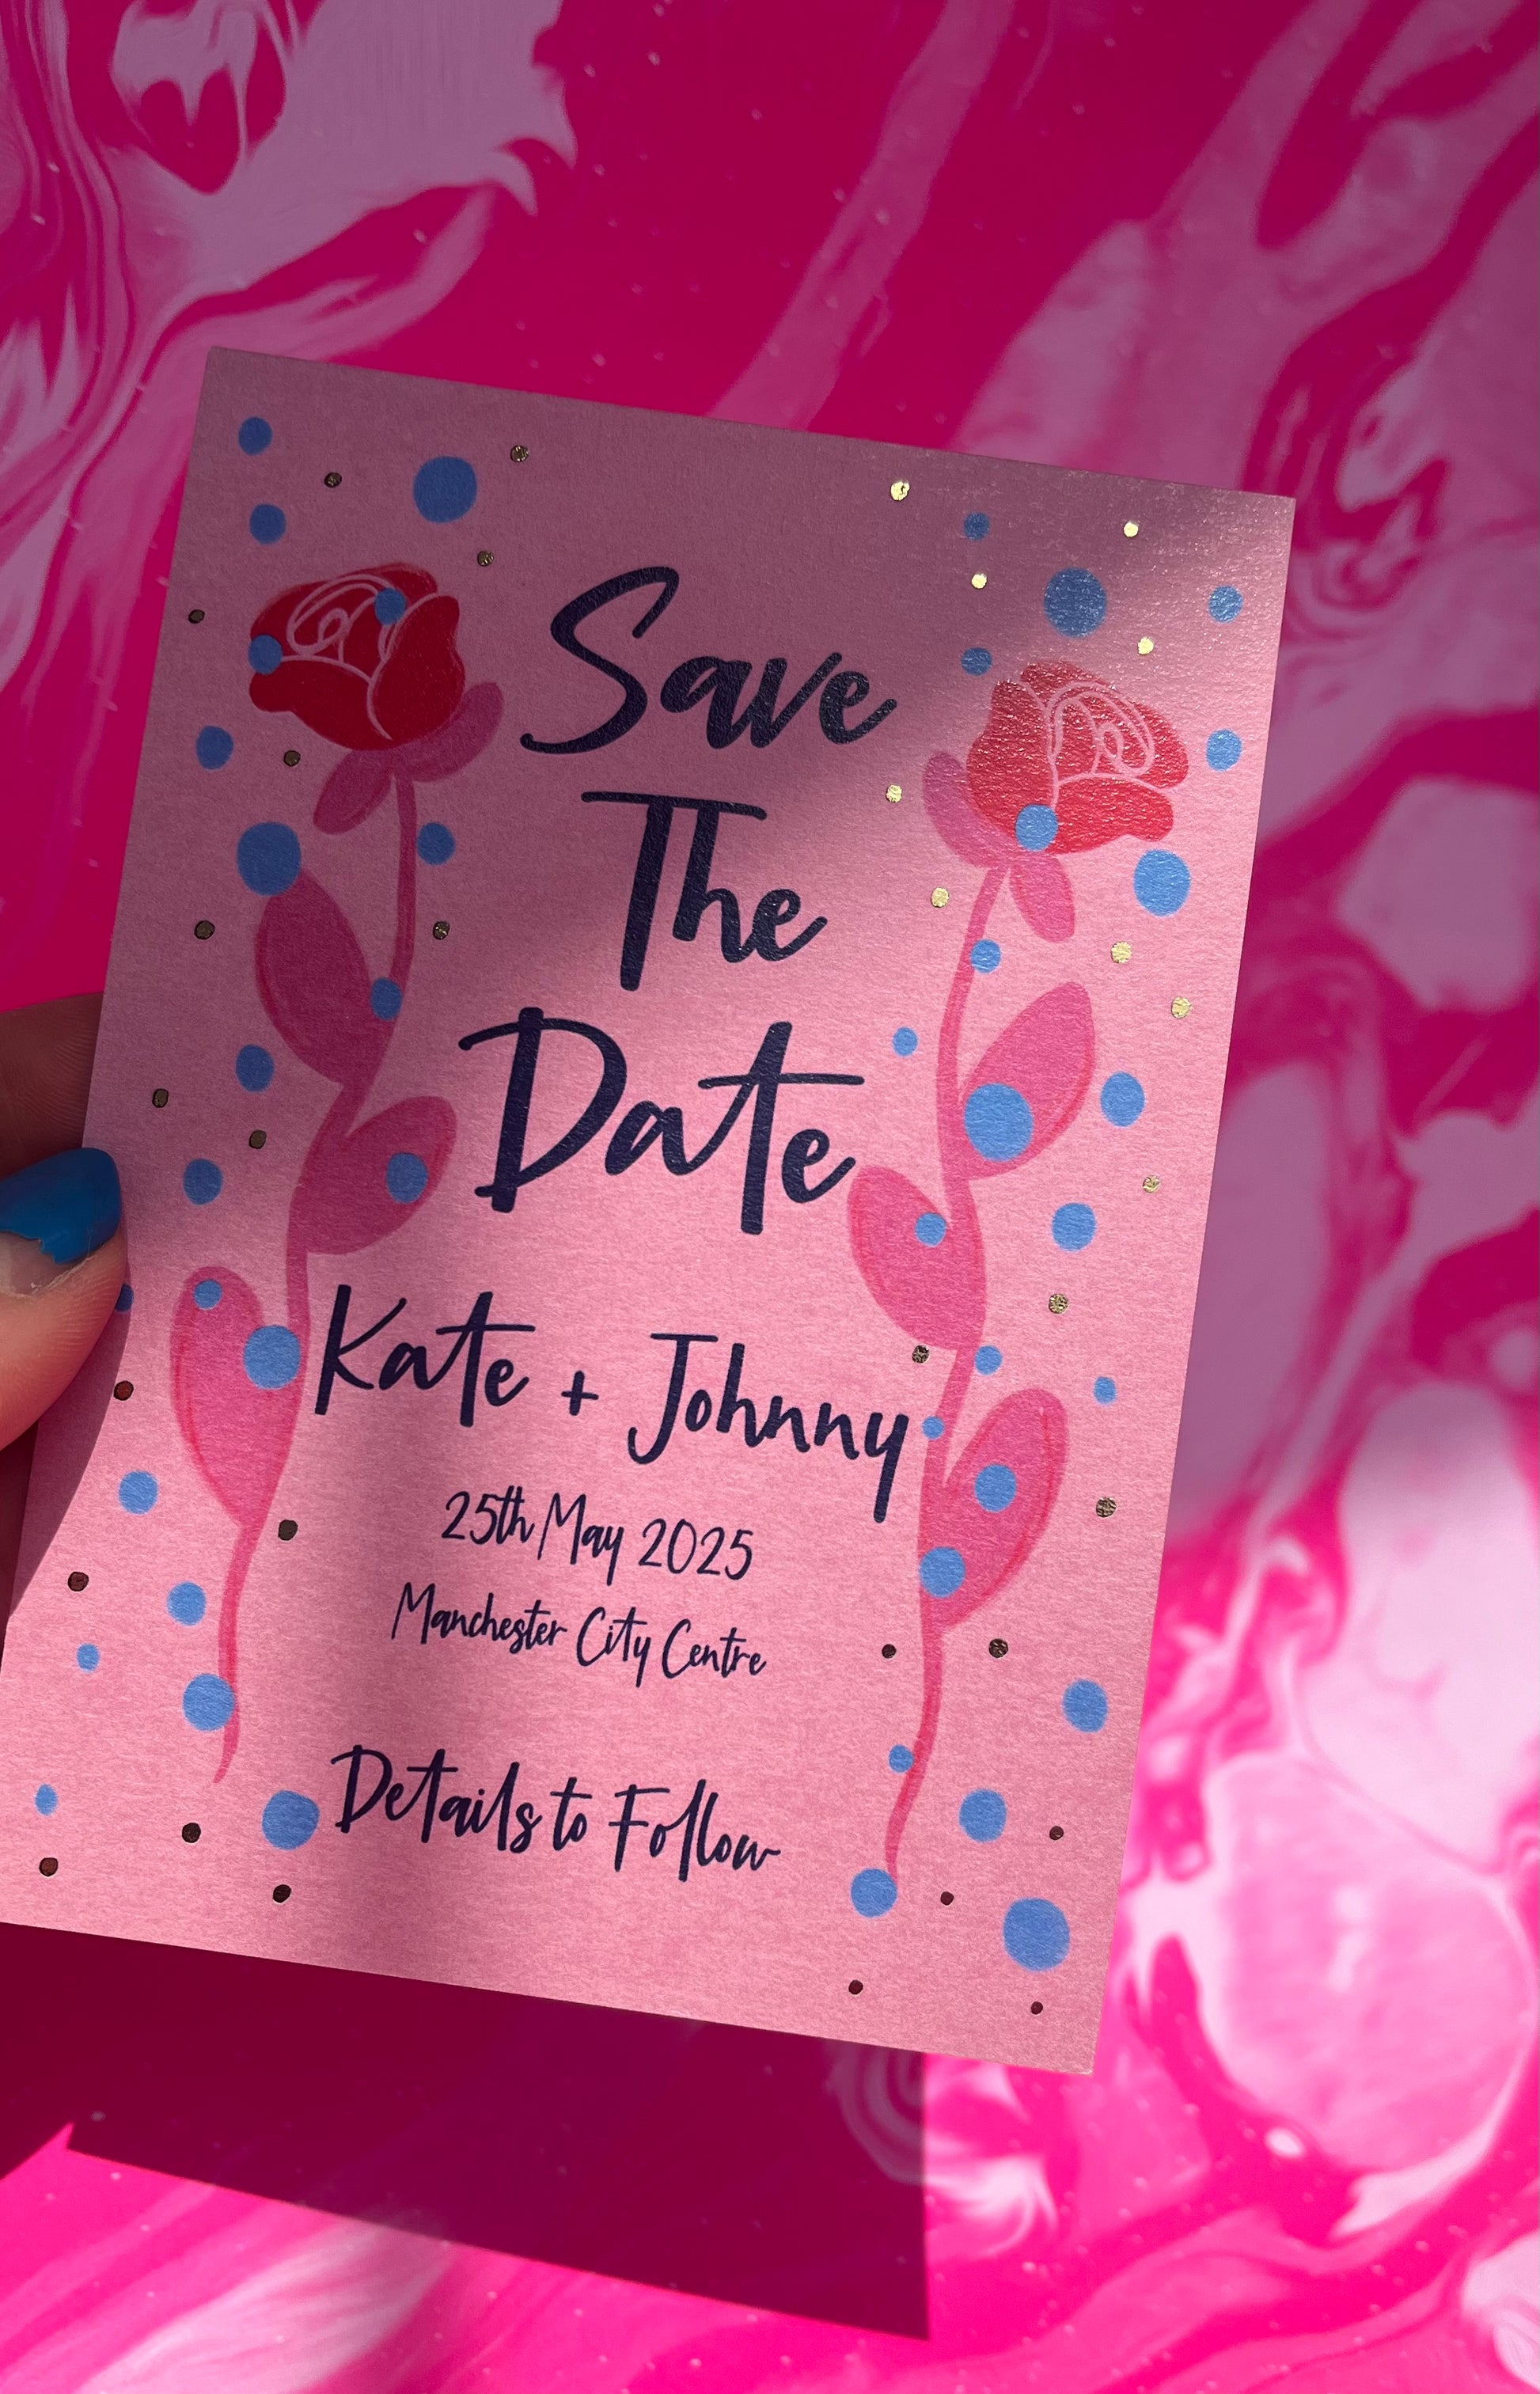 Save
The
Date
Kate + Johnny
25th May 2025
Manchester City Centre
Details to Follow